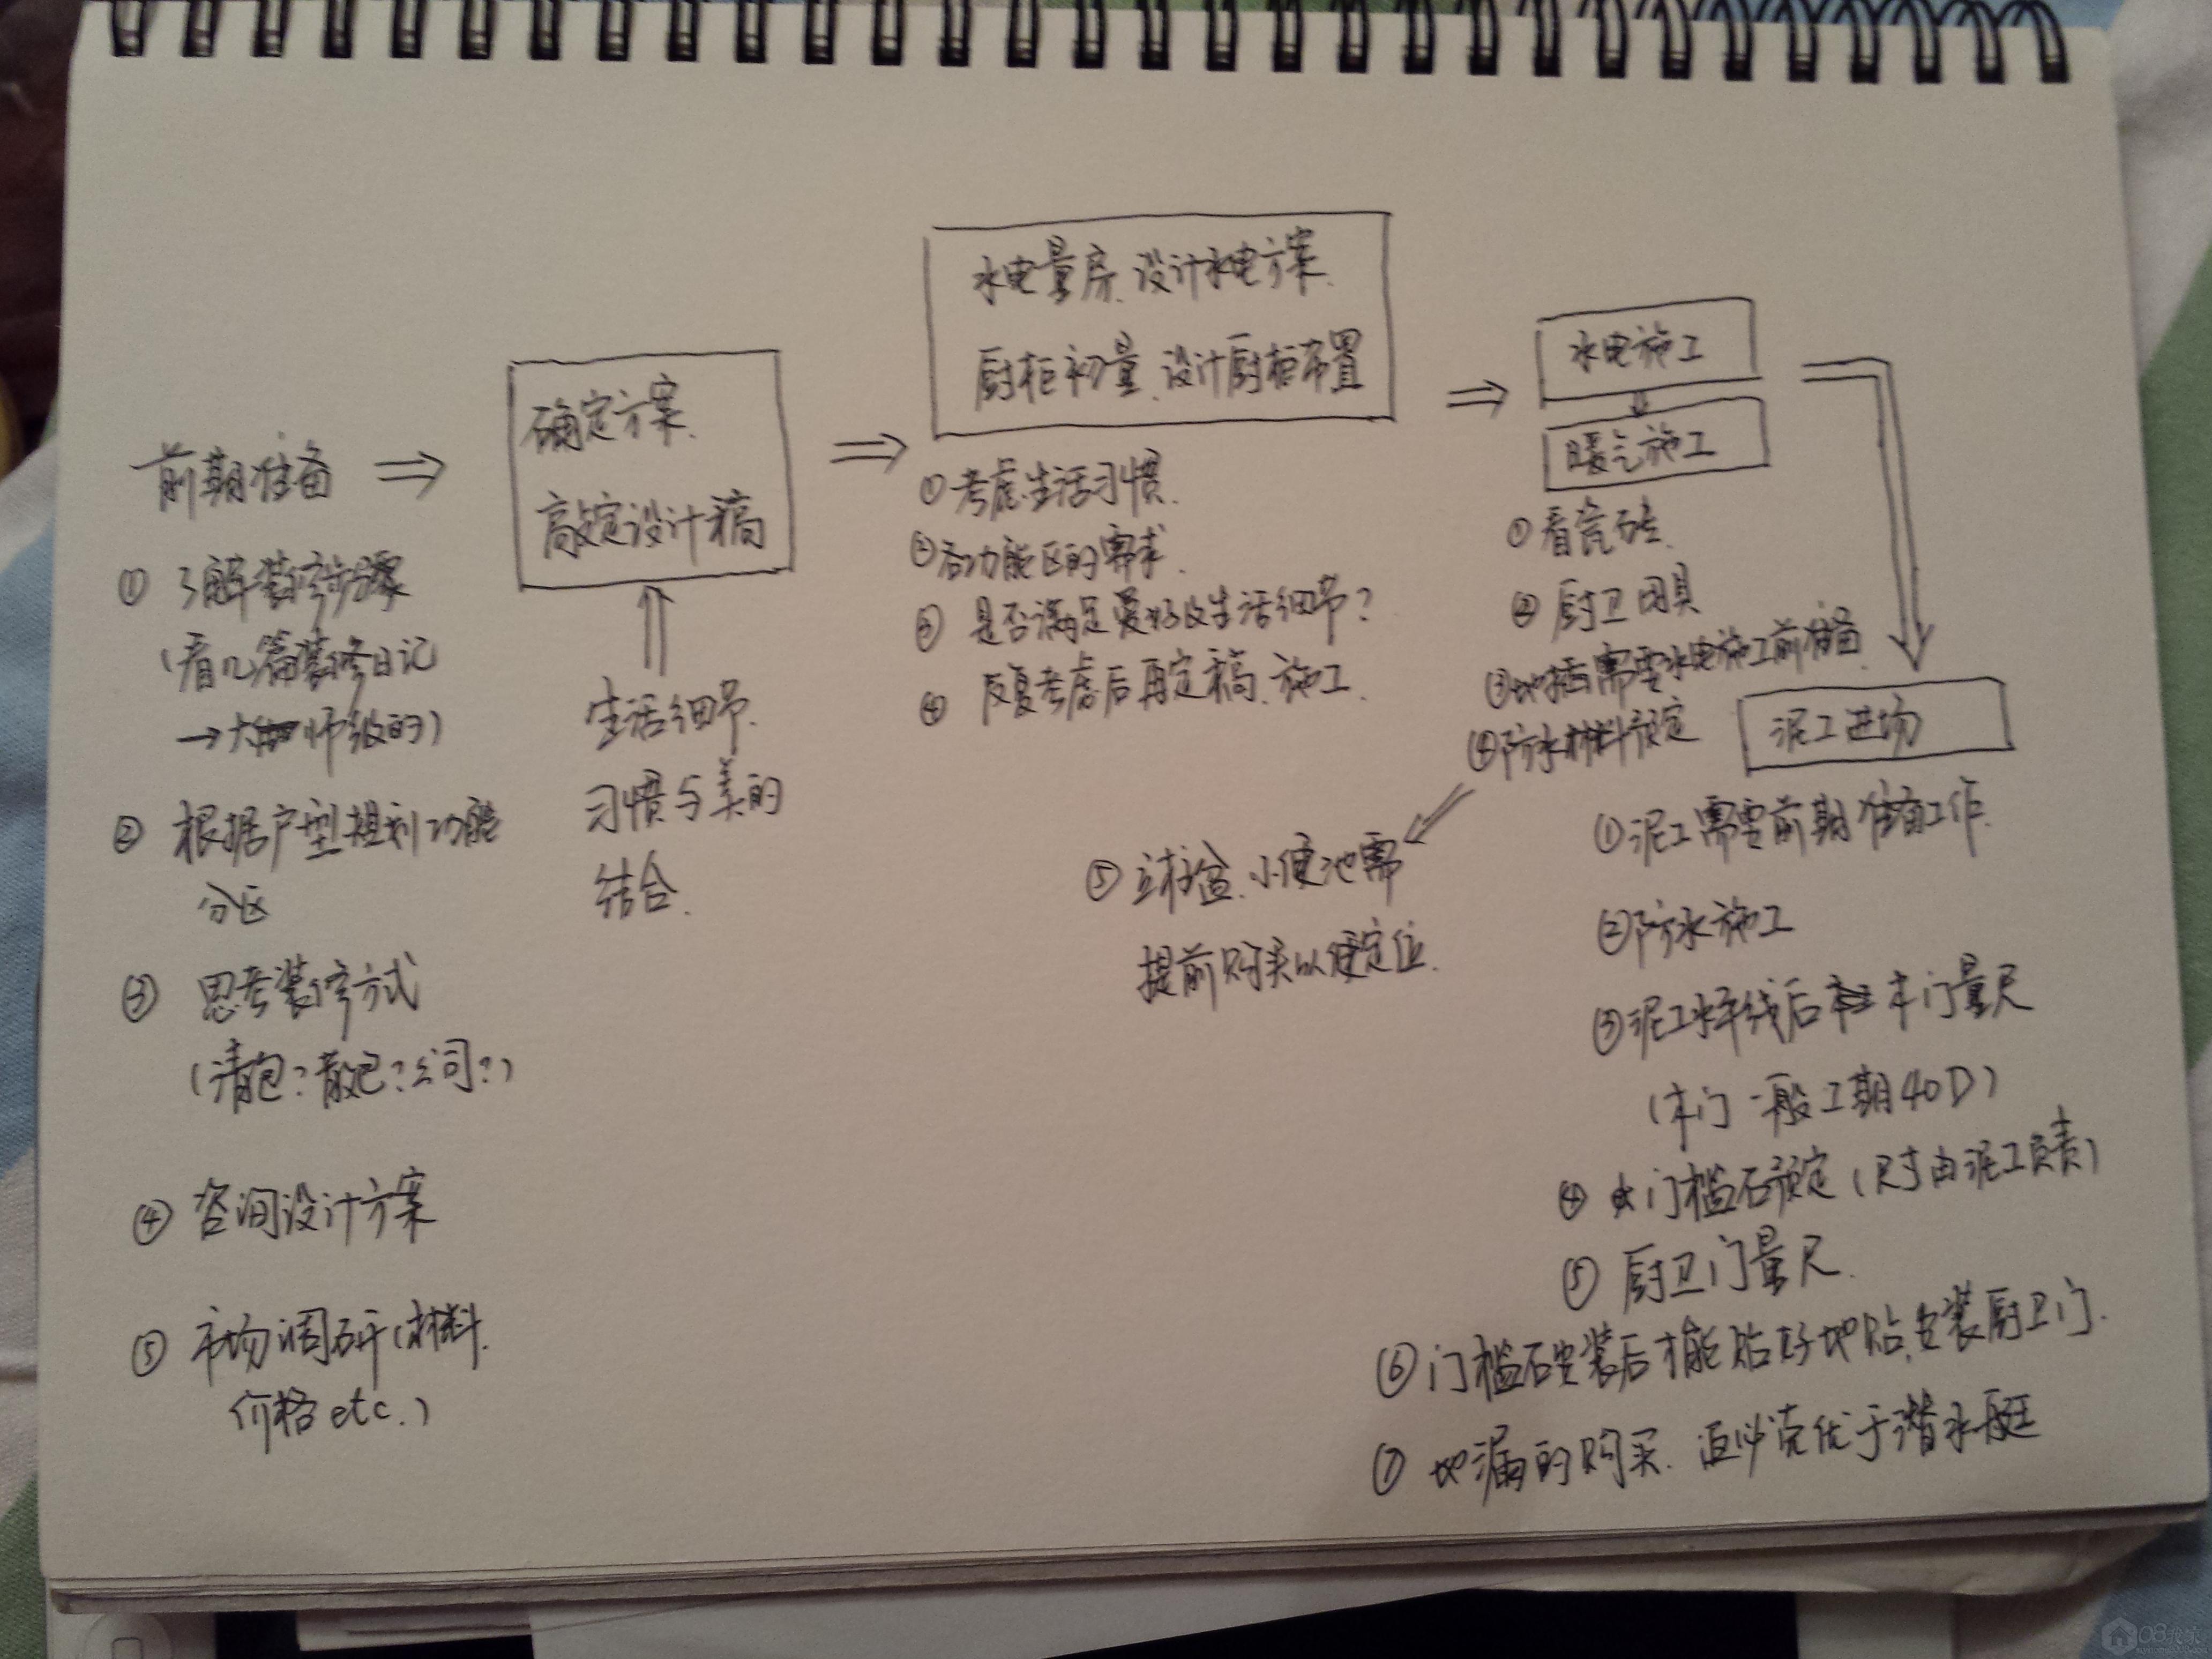 前期准备
① 了解装修步骤
(看几篇装修日记
→大师级的)
② 根据户型规划功能
分区
③ 思考装修方式
(清包?散包?公司?)
④ 咨询设计方案
⑤ 市场调研(材料.
价格etc.)
确定方案.
敲定设计稿
生活细节.
习惯与美的
结合.
水电量房.设计水电方案.
厨柜初量.设计厨柜布置
①考虑生活习惯.
②各功能区的需求.
③ 是否满足爱好及生活细节?
④ 反复考虑后再定稿.施工.
水电施工
暖气施工
①看瓷砖.
② 厨卫用具
③地插需要水电施工前准备.
④防水材料预定
⑤ 立柱盆.小便池需
提前购买以便定位.
泥工进场
①泥工需要前期准备工作.
②防水施工
③泥工水平线后木门量尺
(木门一般工期40D)
④ 门槛石预定(尺寸由泥工负责)
⑤ 厨卫门量尺.
⑥门槛石安装后才能贴好地贴,安装厨卫门.
⑦ 地漏的购买.返必克优于潜水艇
08我家